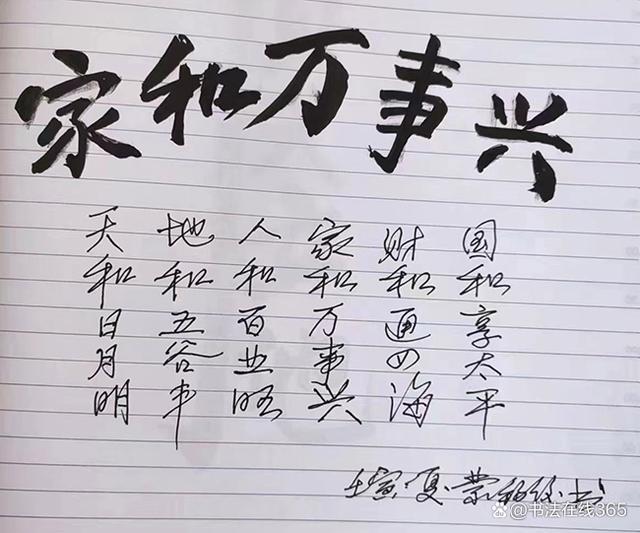 家和万事兴
天和日月明
地和五谷丰
人和百业旺
家和万事兴
财和通四海
国和享太平
壬寅夏 书
@书法在线365